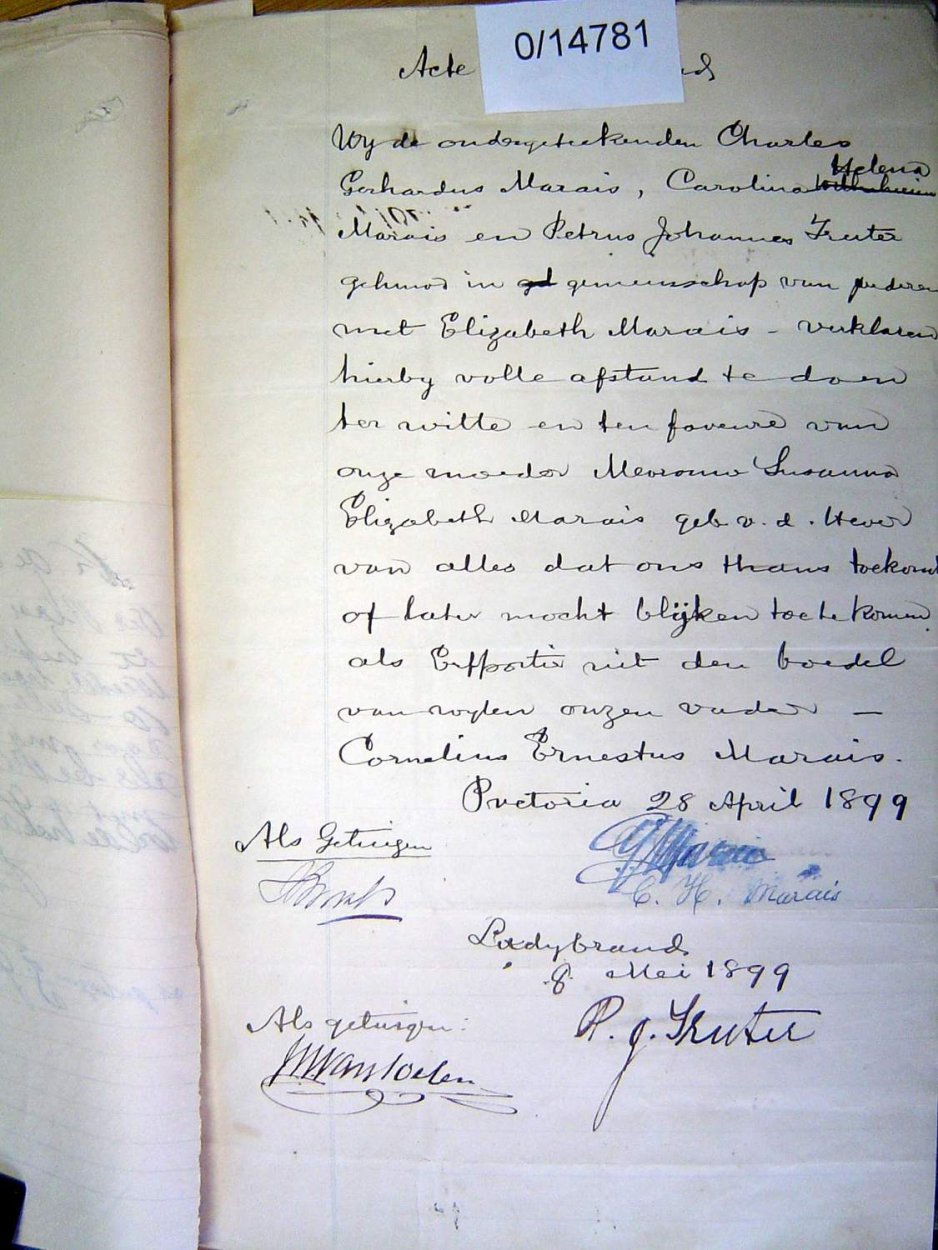 0/14781
Acte
Wy de ondergeteekenden Charles
Gerhardus Marais, Carolina Helena
Marais en Petrus Johannes Truter
gehuwd in gemeenschap van goederen
met Elizabeth Marais – verklaren
hierby volle afstand te doen
ter witte en ten faveure van
onze moeder Mevrouw Susanna
Elizabeth Marais geb. v. d. Hever
van alles dat ons thans toekomt
of later mocht blijken toe te komen
als Erfportie uit den boedel
van wylen onzen vader –
Cornelius Ernestus Marais.
Pretoria 28 April 1899
Als Getuigen
C. H. Marais
Ladybrand
8 Mei 1899
Als getuigen:
P. J. Truter